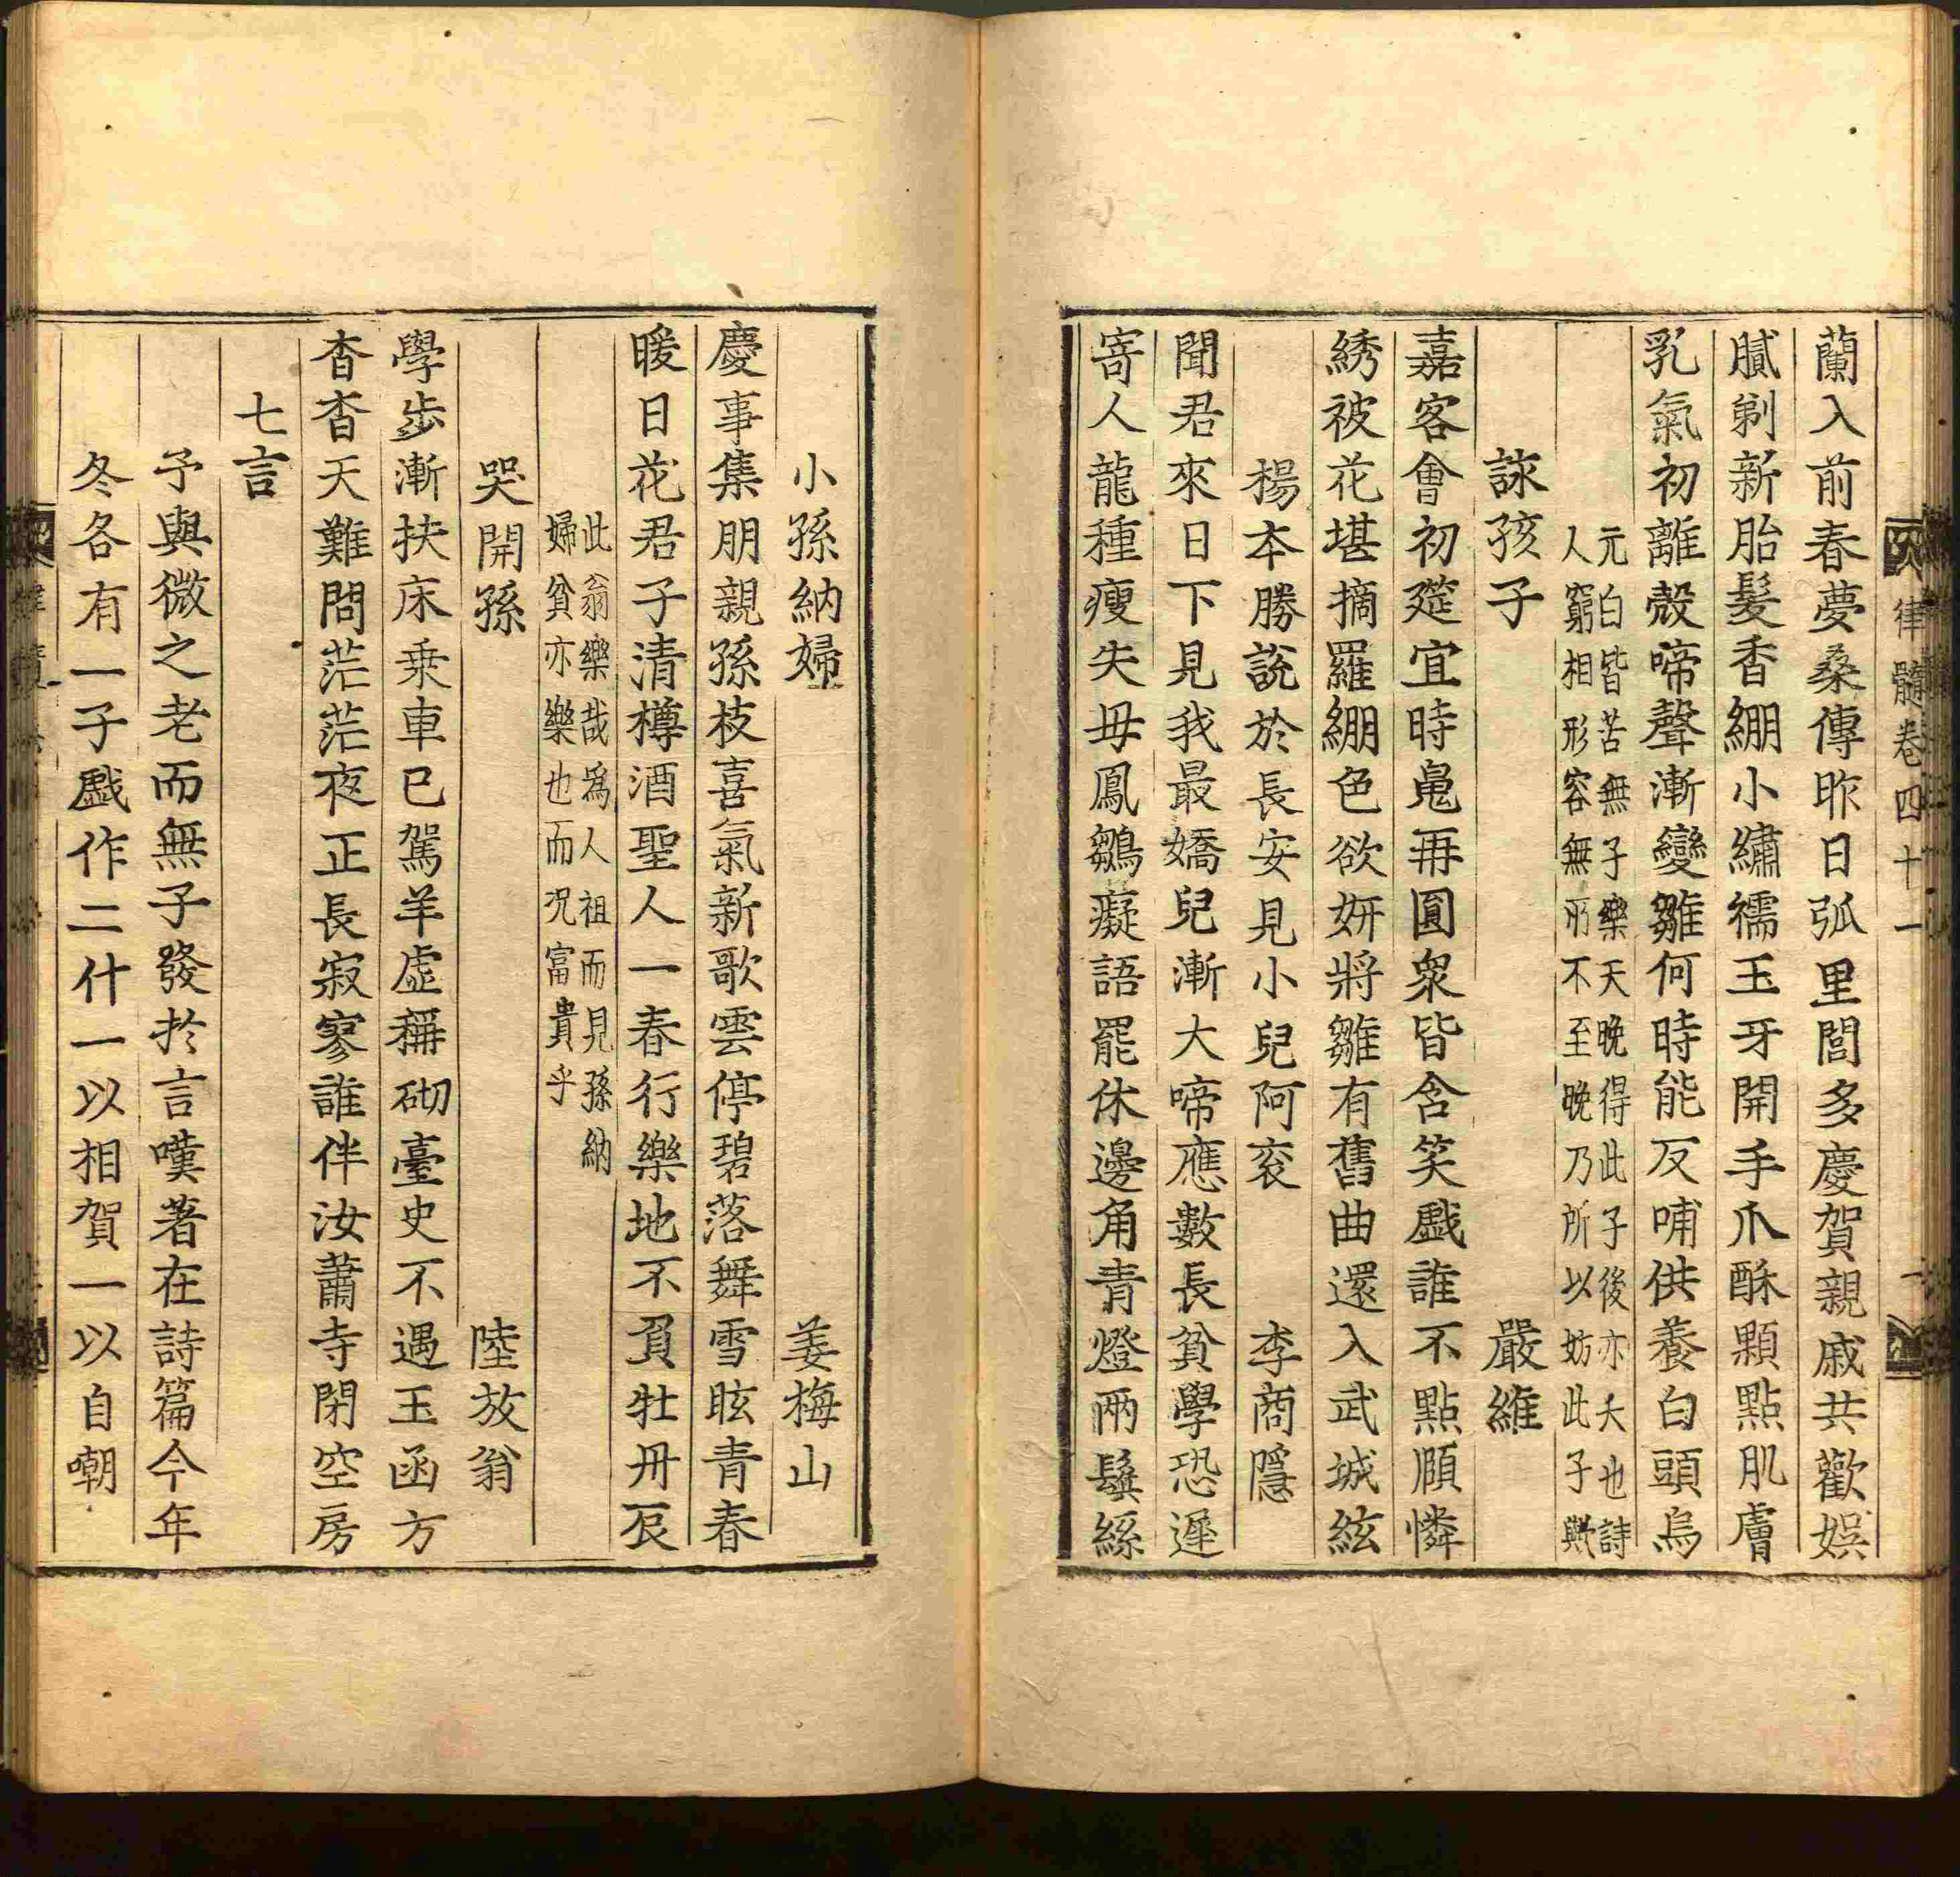 律髓卷四十一
蘭入前春夢桑傳昨日弧里閭多慶賀親戚共歡娛
膩剃新胎髮香綳小繡襦玉牙開手爪酥顆點肌膚
乳氣初離殼啼聲漸變雛何時能反哺供養白頭烏
元白皆苦無子樂天晚得此子後亦夭也詩
人窮相形容無所不至晚乃所以妨此子歟
詠孩子 嚴維
嘉客會初筵宜時魄再圓衆皆含笑戲誰不點頤憐
綉被花堪摘羅綳色欲妍將雛有舊曲還入武城絃
楊本勝說於長安見小兒阿袞 李商隱
聞君來日下見我最嬌兒漸大啼應數長貧學恐遲
寄人龍種瘦失毋鳳鶵癡語罷休邊角青燈兩鬢絲
小孫納婦 姜梅山
慶事集朋親孫枝喜氣新歌雲停碧落舞雪眩青春
暖日花君子清樽酒聖人一春行樂地不負牡丹辰
此翁樂哉為人祖而見孫納
婦貧亦樂也而况富貴乎
哭開孫 陸放翁
學步漸扶床乗車已駕羊虛稱砌臺史不遇玉函方
杳杳天難問茫茫夜正長寂寥誰伴汝蕭寺閉空房
七言
予與微之老而無子發於言嘆著在詩篇今年
冬各有一子戲作二什一以相賀一以自嘲